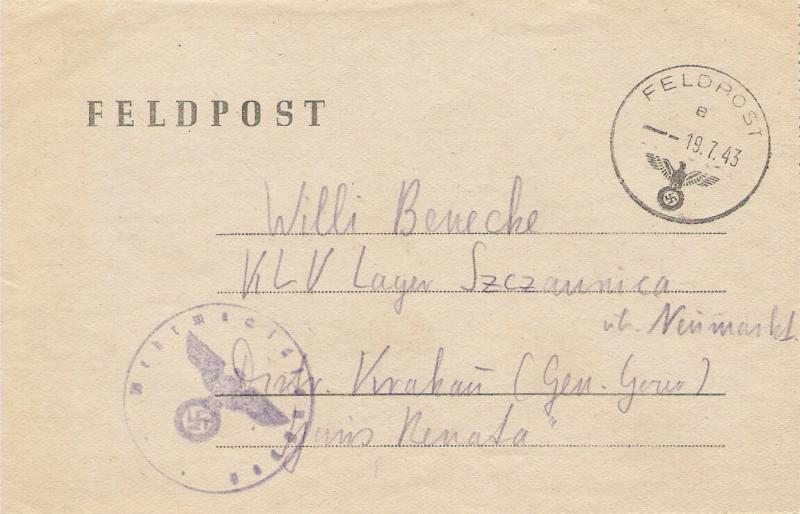 FELDPOST
FELDPOST
a
19.7.43
Willi Benecke
KLV Lager Szczawnica
üb. Neumarkt.
Distr. Krakau (Gen. Gouv)
"Haus Renata"